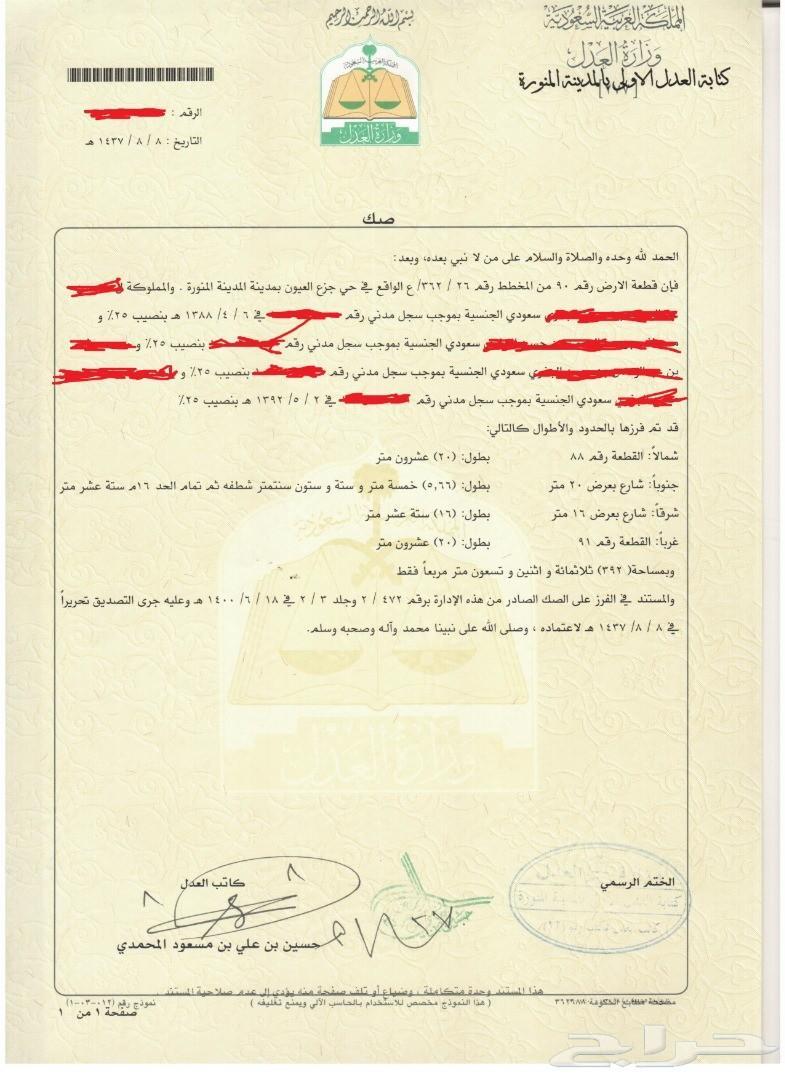 المملكة العربية السعودية
وزارة العدل
كتابة العدل الاولى بالمدينة المنورة
بسم الله الرحمن الرحيم
وزارة العدل
الرقم :
التاريخ : ٨ / ٨ / ١٤٣٧ هـ
صك
الحمد لله وحده والصلاة والسلام على من لا نبي بعده، وبعد:
فإن قطعة الارض رقم ٩٠ من المخطط رقم ٢٦ / ٣٦٢/ ع الواقع في حي جزع العيون بمدينة المدينة المنورة . والمملوكة
سعودي الجنسية بموجب سجل مدني رقم في ٦ / ٤ / ١٣٨٨ هـ بنصيب ٢٥٪ و
سعودي الجنسية بموجب سجل مدني رقم بنصيب ٢٥٪ و
بن سعودي الجنسية بموجب سجل مدني رقم بنصيب ٢٥٪ و
سعودي الجنسية بموجب سجل مدني رقم في ٢ / ٥ / ١٣٩٢ هـ بنصيب ٢٥٪
قد تم فرزها بالحدود والأطوال كالتالي:
شمالاً: القطعة رقم ٨٨ بطول: (٢٠) عشرون متر
جنوباً: شارع بعرض ٢٠ متر بطول: (٥,٦٦) خمسة متر و ستة و ستون سنتمتر شطفه ثم تمام الحد ١٦م ستة عشر متر
شرقاً: شارع بعرض ١٦ متر بطول: (١٦) ستة عشر متر
غرباً: القطعة رقم ٩١ بطول: (٢٠) عشرون متر
وبمساحة( ٣٩٢) ثلاثمائة و اثنين و تسعون متر مربعاً فقط
والمستند في الفرز على الصك الصادر من هذه الإدارة برقم ٤٧٢ / ٢ وجلد ٣ / ٢ في ١٨ / ٦ / ١٤٠٠ هـ وعليه جرى التصديق تحريراً
في ٨ / ٨ / ١٤٣٧ هـ لاعتماده ، وصلى الله على نبينا محمد وآله وصحبه وسلم.
وزارة العدل
الختم الرسمي
كاتب العدل
حسين بن علي بن مسعود المحمدي
هذا المستند وحدة متكاملة ، وضياع أو تلف صفحة منه يؤدي إلى عدم صلاحية المستند
( هذا النموذج مخصص للاستخدام بالحاسب الآلي ويمنع تغليفه )
نموذج رقم (١٢-٠٣-٠١)
صفحة ١ من ١
حراج